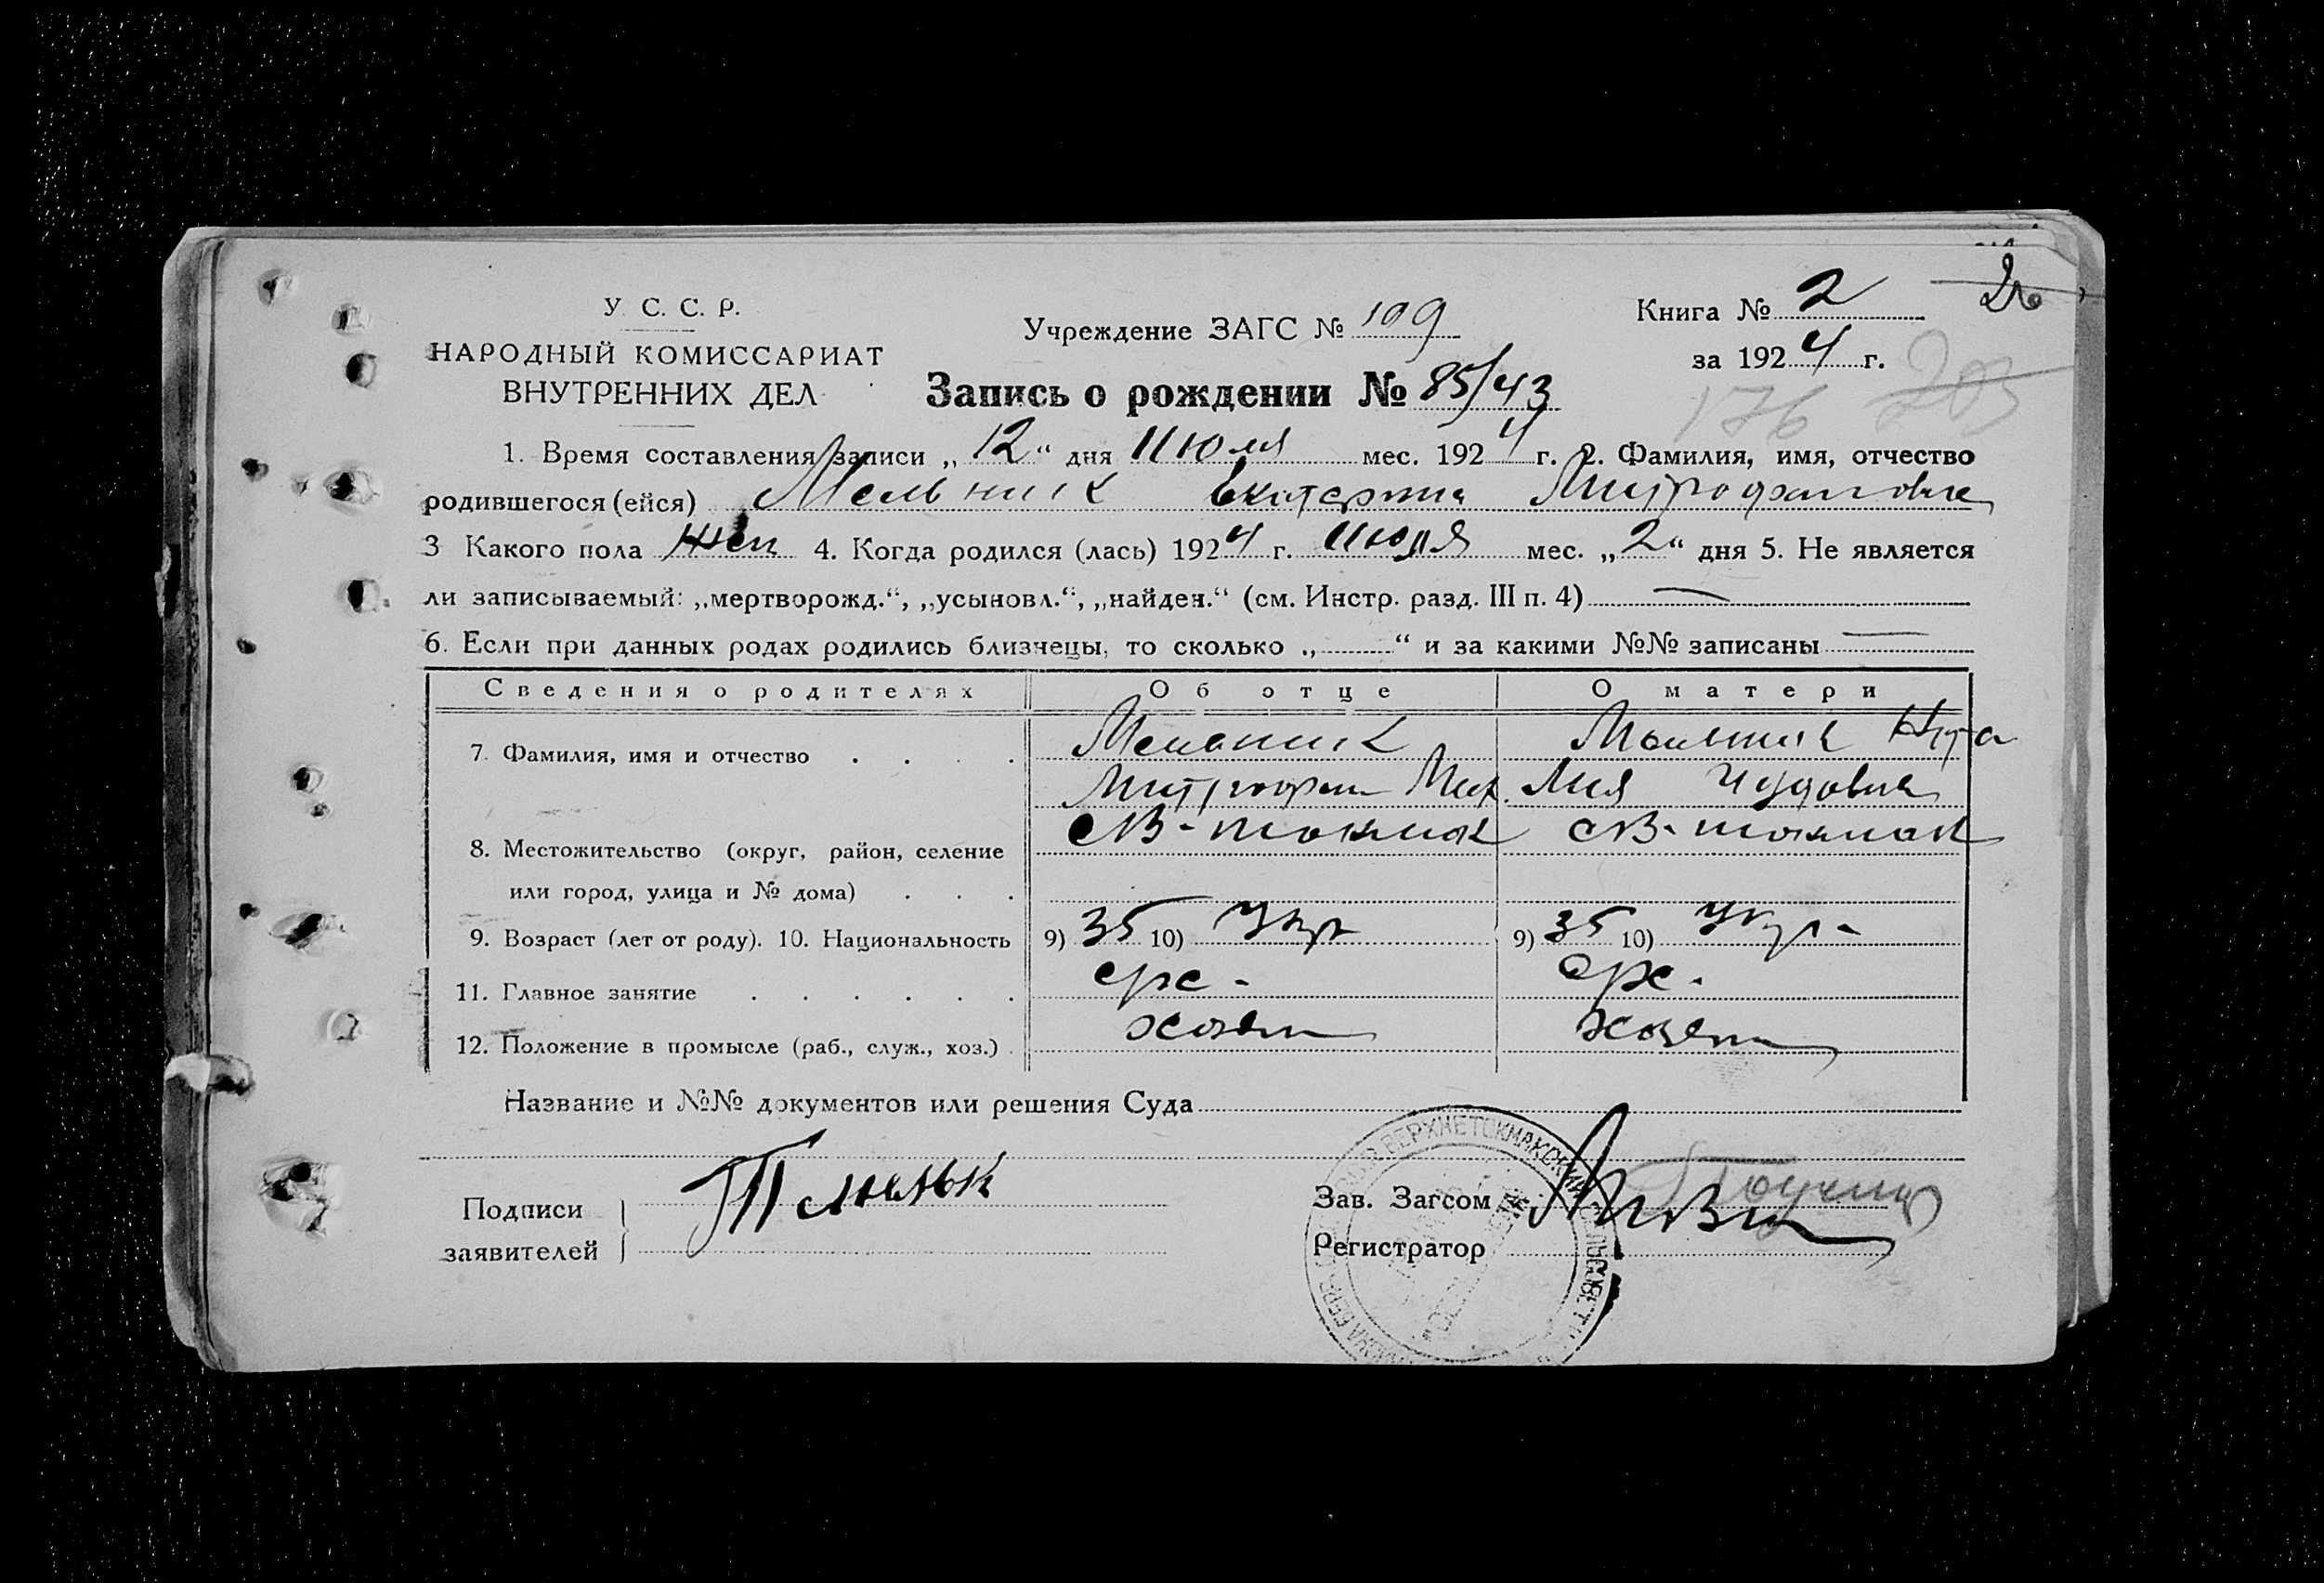 У. С. С. Р.
НАРОДНЫЙ КОМИССАРИАТ
ВНУТРЕННИХ ДЕЛ
Учреждение ЗАГС № 109
Книга № 2
26
за 1924 г.
Запись о рождении № 85/43
176 203
1. Время составления записи „12“ дня Июля мес. 1924 г. 2. Фамилия, имя, отчество
родившегося (ейся) Мельник Екатерина Митрофановна
3 Какого пола Жен 4. Когда родился (лась) 1924 г. Июля мес. „2“ дня 5. Не является
ли записываемый: „мертворожд.“, „усыновл.“, „найден.“ (см. Инстр. разд. III п. 4) —
6. Если при данных родах родились близнецы, то сколько „ “ и за какими №№ записаны —
Сведения о родителях Об отце О матери
7. Фамилия, имя и отчество Мельник Мельник
Митрофан Мих.
8. Местожительство (округ, район, селение СВ-токмак СВ-токмак
или город, улица и № дома)
9. Возраст (лет от роду). 10. Национальность 9) 35 10) Укр 9) 35 10) Укр.
11. Главное занятие
12. Положение в промысле (раб., служ., хоз.) хозяин хозяин
Название и №№ документов или решения Суда
ВЕРХНЕТОКМАКСКИЙ
Подписи
заявителей
Зав. Загсом
Регистратор